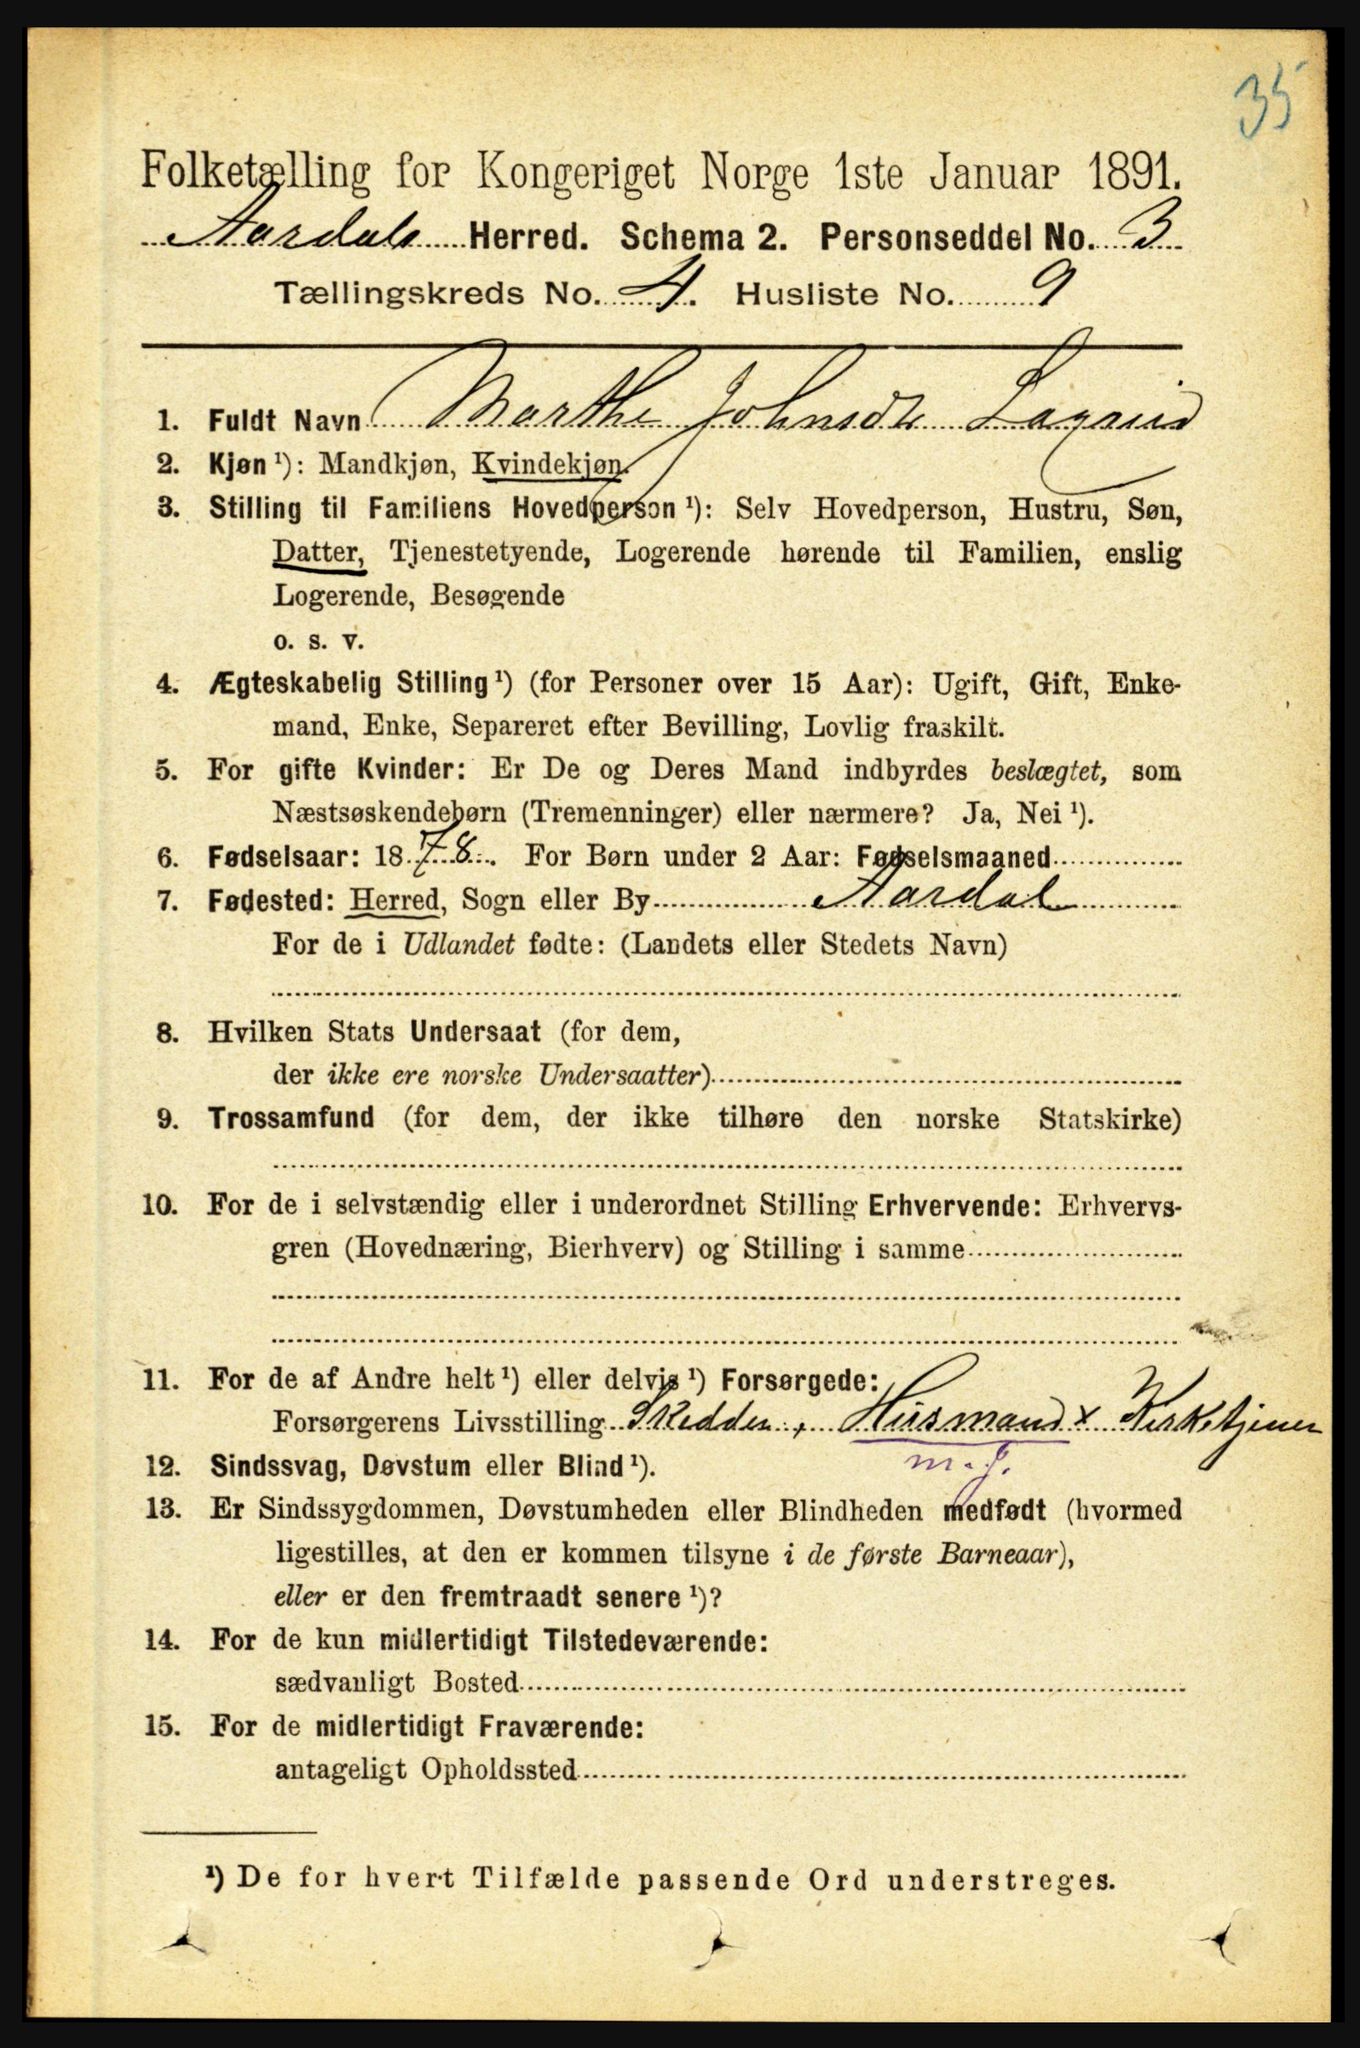 35
Folketælling for Kongeriget Norge 1ste Januar 1891.
Aardals Herred. Schema 2. Personseddel No. 3
Tællingskreds No. 4. Husliste No. 9
1. Fuldt Navn Marthe Johnsdtr
2. Kjøn ¹): Mandkjøn, Kvindekjøn.
3. Stilling til Familiens Hovedperson ¹): Selv Hovedperson, Hustru, Søn,
Datter, Tjenestetyende, Logerende hørende til Familien, enslig
Logerende, Besøgende
o. s. v.
4. Ægteskabelig Stilling ¹) (for Personer over 15 Aar): Ugift, Gift, Enke-
mand, Enke, Separeret efter Bevilling, Lovlig fraskilt.
5. For gifte Kvinder: Er De og Deres Mand indbyrdes beslægtet, som
Næstsøskendebørn (Tremenninger) eller nærmere? Ja, Nei ¹).
6. Fødselsaar: 1878. For Børn under 2 Aar: Fødselsmaaned
7. Fødested: Herred, Sogn eller By Aardal
For de i Udlandet fødte: (Landets eller Stedets Navn)
8. Hvilken Stats Undersaat (for dem,
der ikke ere norske Undersaatter)
9. Trossamfund (for dem, der ikke tilhøre den norske Statskirke)
10. For de i selvstændig eller i underordnet Stilling Erhvervende: Erhvervs-
gren (Hovednæring, Bierhverv) og Stilling i samme
11. For de af Andre helt ¹) eller delvis ¹) Forsørgede:
Forsørgerens Livsstilling Skedder, Husmand x Kirketjener
m. J.
12. Sindssvag, Døvstum eller Blind ¹).
13. Er Sindssygdommen, Døvstumheden eller Blindheden medfødt (hvormed
ligestilles, at den er kommen tilsyne i de første Barneaar),
eller er den fremtraadt senere ¹)?
14. For de kun midlertidigt Tilstedeværende:
sædvanligt Bosted
15. For de midlertidigt Fraværende:
antageligt Opholdssted
¹) De for hvert Tilfælde passende Ord understreges.